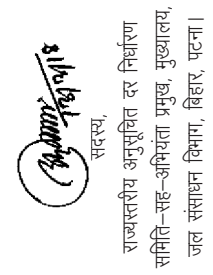 13/2/18
सदस्य,
राज्यस्तरीय अनुसूचित दर निर्धारण
समिति–सह–अभियंता प्रमुख, मुख्यालय,
जल संसाधन विभाग, बिहार, पटना।